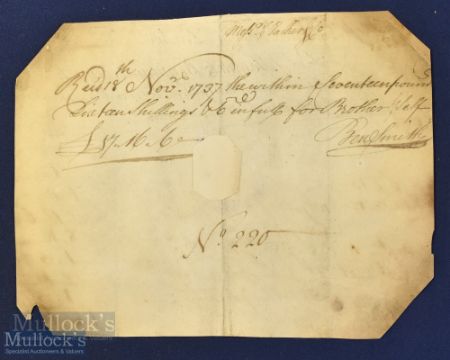 Recd 18th Novr. 1737 the within Seventeen pound
Sixteen Shillings & 6d in full for Brother & Self
£17.16.6 Ben Smith
No. 220
Mullock's
Specialist Auctioneers & Valuers